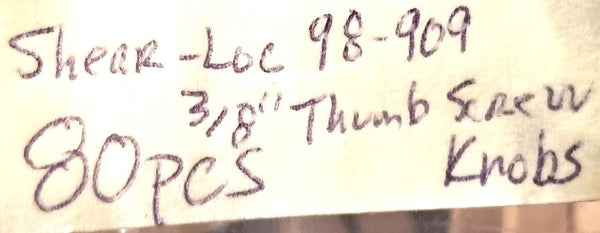 Shear-Loc 98-909
3/8" Thumb Screw
80pcs Knobs